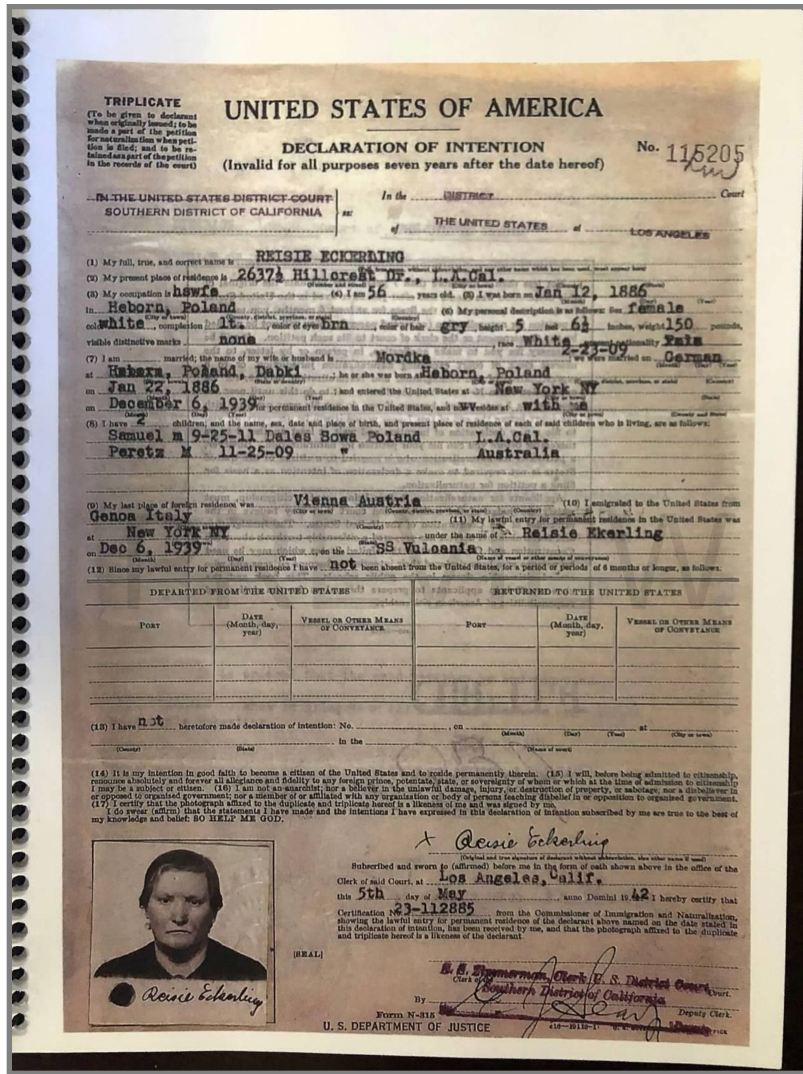 TRIPLICATE
(To be given to declarant
when originally issued; to be
made a part of the petition
for naturalization when peti-
tion is filed; and to be re-
tained as a part of the petition
in the records of the court)
UNITED STATES OF AMERICA
DECLARATION OF INTENTION
(Invalid for all purposes seven years after the date hereof)
No. 115205
IN THE UNITED STATES DISTRICT COURT
SOUTHERN DISTRICT OF CALIFORNIA
ss:
In the DISTRICT Court
of THE UNITED STATES at LOS ANGELES
(1) My full, true, and correct name is REISIE ECKERLING
(2) My present place of residence is 2637½ Hillcrest Dr., L.A.Cal.
(3) My occupation is hswfe (4) I am 56 years old. (5) I was born on Jan 12, 1886
in Heborn, Poland (6) My personal description is as follows: Sex female
color white, complexion lt., color of eyes brn, color of hair gry, height 5 feet 6½ inches, weight 150 pounds,
visible distinctive marks none race White nationality
(7) I am married; the name of my wife or husband is Mordka we were married on 2-23-09 German
at Poland, Dabki; he or she was born at Heborn, Poland
on Jan 22, 1886; and entered the United States at New York NY
on December 6, 1939 for permanent residence in the United States, and now resides at with me
(8) I have 2 children; and the name, sex, date and place of birth, and present place of residence of each of said children who is living, are as follows:
Samuel m 9-25-11 Dales Sowa Poland L.A.Cal.
Peretz M 11-25-09 " Australia
(9) My last place of foreign residence was Vienna Austria (10) I emigrated to the United States from
Genoa Italy (11) My lawful entry for permanent residence in the United States was
at New York NY under the name of Reisie Ekerling
on Dec 6, 1939, on the SS Vulcania
(12) Since my lawful entry for permanent residence I have not been absent from the United States, for a period or periods of 6 months or longer, as follows:
DEPARTED FROM THE UNITED STATES RETURNED TO THE UNITED STATES
PORT DATE (Month, day, year) VESSEL OR OTHER MEANS OF CONVEYANCE PORT DATE (Month, day, year) VESSEL OR OTHER MEANS OF CONVEYANCE
(13) I have not heretofore made declaration of intention: No. , on at
(Month) (Day) (Year) (City or town)
in the
(County) (State) (Name of court)
(14) It is my intention in good faith to become a citizen of the United States and to reside permanently therein. (15) I will, before being admitted to citizenship,
renounce absolutely and forever all allegiance and fidelity to any foreign prince, potentate, state, or sovereignty of whom or which at the time of admission to citizenship
I may be a subject or citizen. (16) I am not an anarchist; nor a believer in the unlawful damage, injury, or destruction of property, or sabotage; nor a disbeliever in
or opposed to organized government; nor a member of or affiliated with any organization or body of persons teaching disbelief in or opposition to organized government.
(17) I certify that the photograph affixed to the duplicate and triplicate hereof is a likeness of me and was signed by me.
I do swear (affirm) that the statements I have made and the intentions I have expressed in this declaration of intention subscribed by me are true to the best of
my knowledge and belief: SO HELP ME GOD.
x Reisie Eckerling
(Original and true signature of declarant without abbreviation, also other name if used)
Subscribed and sworn to (affirmed) before me in the form of oath shown above in the office of the
Clerk of said Court, at Los Angeles, Calif.
this 5th day of May anno Domini 1942 I hereby certify that
Certification No 23-112885 from the Commissioner of Immigration and Naturalization,
showing the lawful entry for permanent residence of the declarant above named on the date stated in
this declaration of intention, has been received by me, and that the photograph affixed to the duplicate
and triplicate hereof is a likeness of the declarant.
[SEAL]
Reisie Eckerling
Zimmerman, Clerk U. S. District Court
Clerk of the Court.
Southern District of California
By Deputy Clerk.
Deputy
Form N-315
U. S. DEPARTMENT OF JUSTICE